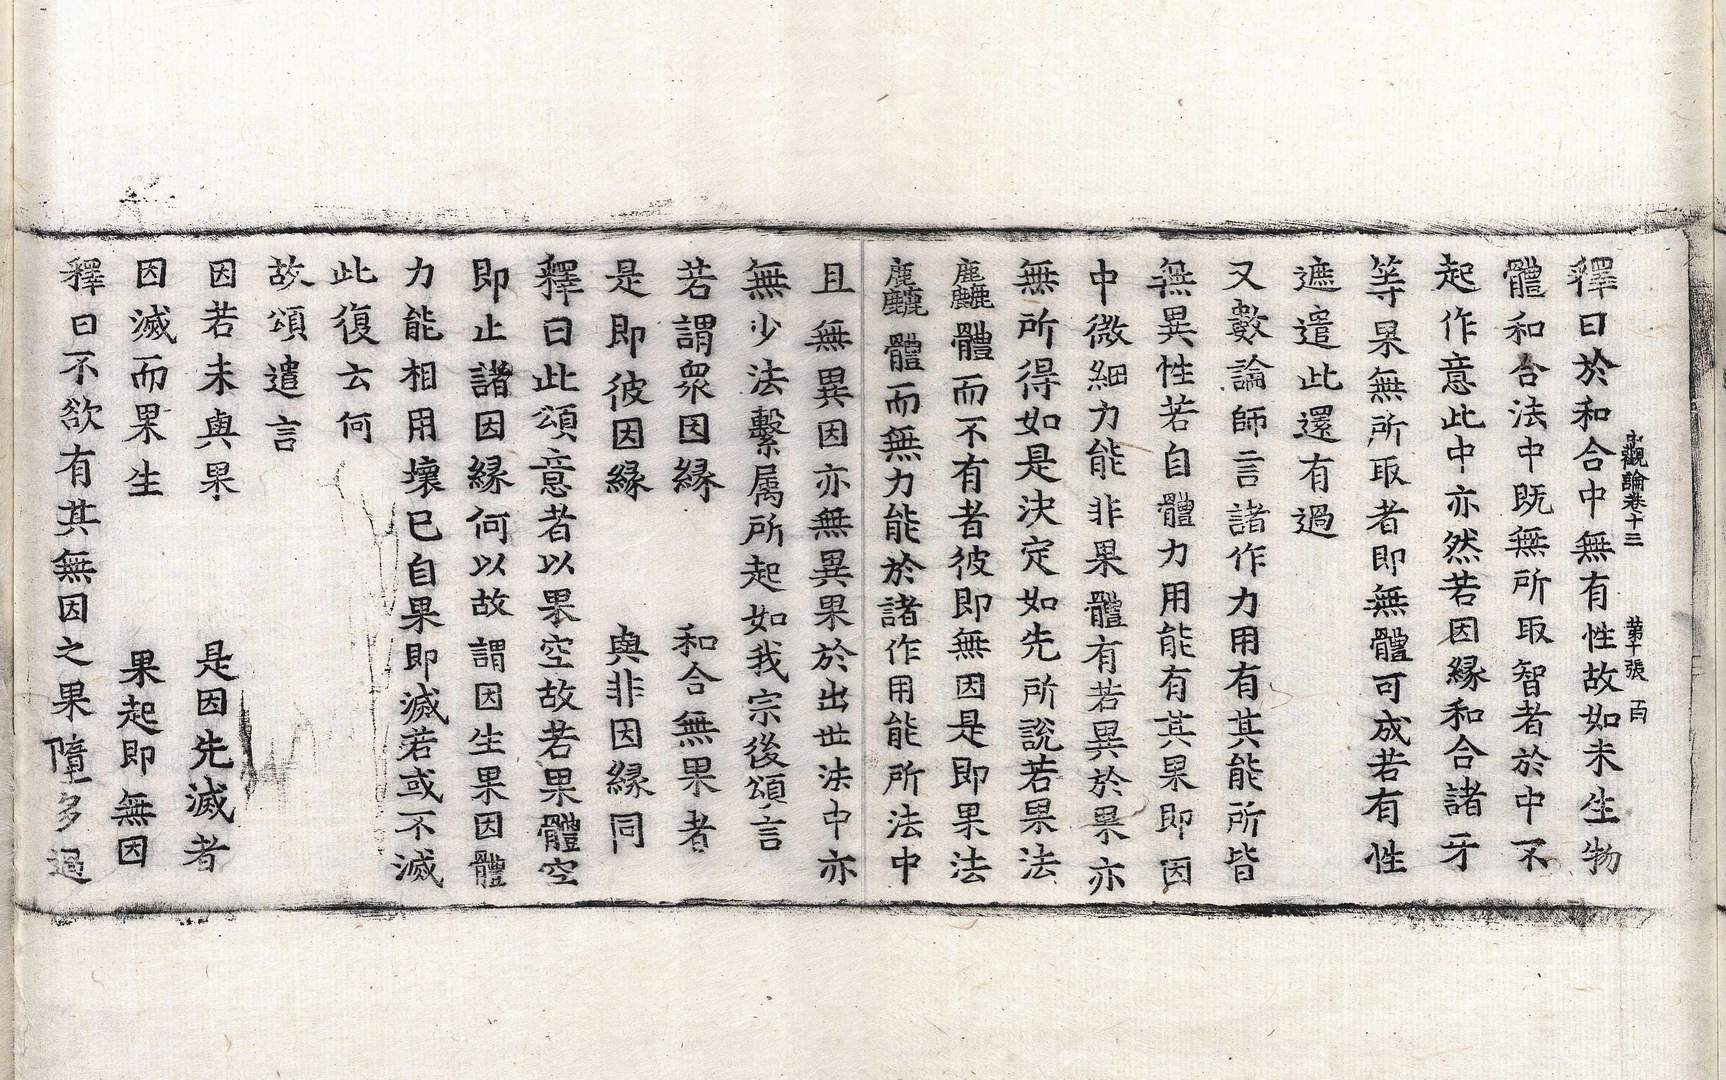 釋曰於和合中無有性故如未生物
體和合法中既無所取智者於中不
起作意此中亦然若因緣和合諸牙
等果無所取者即無體可成若有性
遮遣此還有過
又數論師言諸作力用有其能所皆
無異性若自體力用能有其果即因
中微細力能非果體有若異於果亦
無所得如是決定如先所說若果法
麤體而不有者彼即無因是即果法
麤體而無力能於諸作用能所法中
且無異因亦無異果於出世法中亦
無少法繫属所起如我宗後頌言
若謂衆因緣　和合無果者
是即彼因緣　與非因緣同
釋曰此頌意者以果空故若果體空
即止諸因緣何以故謂因生果因體
力能相用壞已自果即滅若或不滅
此復云何
故頌遣言
因若未與果　是因先滅者
因滅而果生　果起即無因
釋曰不欲有其無因之果隨多過
觀論卷十三　第十張